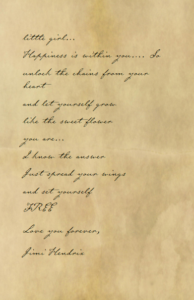 little girl...
Happiness is within you.... So
unlock the chains from your
heart
and let yourself grow
like the sweet flower
you are...
I know the answer
Just spread your wings
and set yourself
FREE
Love you forever,
Jimi Hendrix